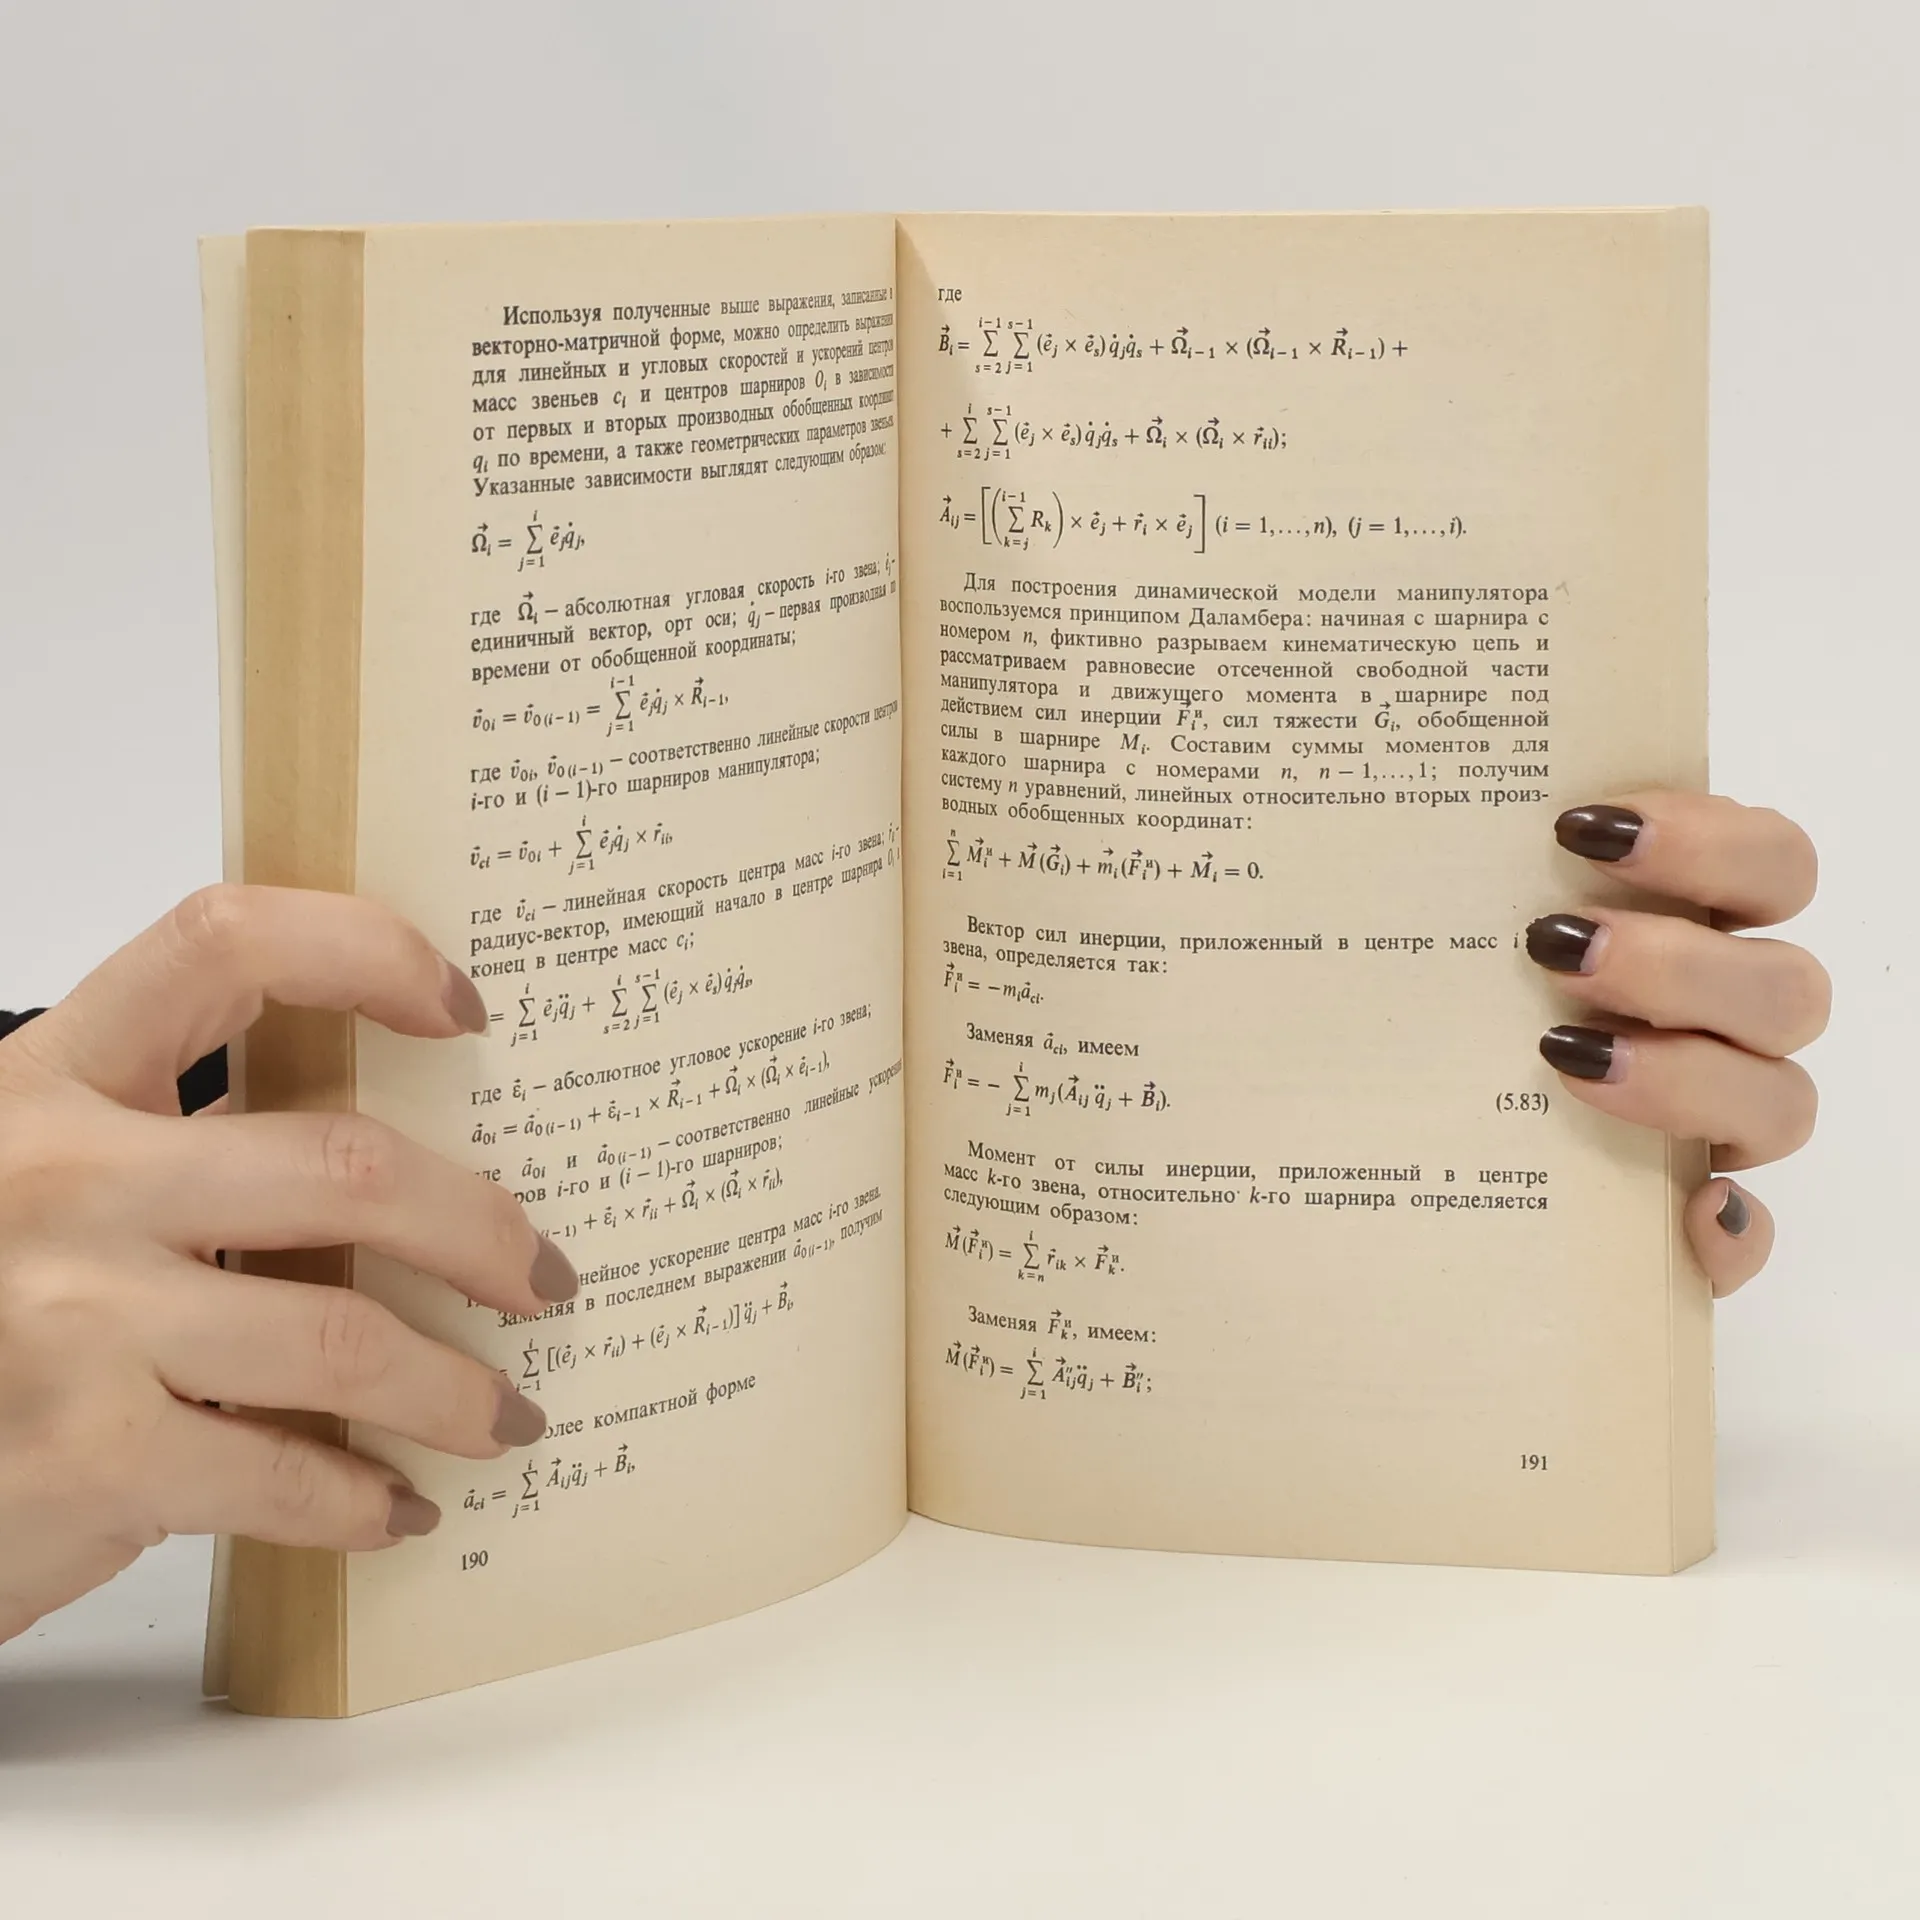 Используя полученные выше выражения, записанные в
векторно-матричной форме, можно определить выражения
для линейных и угловых скоростей и ускорений центров
масс звеньев cᵢ и центров шарниров Oᵢ в зависимости
от первых и вторых производных обобщенных координат
qᵢ по времени, а также геометрических параметров звеньев.
Указанные зависимости выглядят следующим образом:
Ω⃗ᵢ = ∑_{j=1}^{i} e⃗ⱼq̇ⱼ,
где Ω⃗ᵢ – абсолютная угловая скорость i-го звена; e⃗ⱼ –
единичный вектор, орт оси; q̇ⱼ – первая производная по
времени от обобщенной координаты;
v⃗₀ᵢ = v⃗₀₍ᵢ₋₁₎ = ∑_{j=1}^{i−1} e⃗ⱼq̇ⱼ × R⃗ᵢ₋₁,
где v⃗₀ᵢ, v⃗₀₍ᵢ₋₁₎ – соответственно линейные скорости центров
i-го и (i − 1)-го шарниров манипулятора;
v⃗_{ci} = v⃗₀ᵢ + ∑_{j=1}^{i} e⃗ⱼq̇ⱼ × r⃗ᵢᵢ,
где v⃗_{ci} – линейная скорость центра масс i-го звена; r⃗ᵢ –
радиус-вектор, имеющий начало в центре шарнира Oᵢ и
конец в центре масс cᵢ;
= ∑_{j=1}^{i} e⃗ⱼq̈ⱼ + ∑_{s=2}^{i} ∑_{j=1}^{s−1} (e⃗ⱼ × e⃗ₛ) q̇ⱼq̇ₛ,
где ε⃗ᵢ – абсолютное угловое ускорение i-го звена;
a⃗₀ᵢ = a⃗₀₍ᵢ₋₁₎ + ε⃗ᵢ₋₁ × R⃗ᵢ₋₁ + Ω⃗ᵢ × (Ω⃗ᵢ × e⃗ᵢ₋₁),
a⃗₀ᵢ и a⃗₀₍ᵢ₋₁₎ – соответственно линейные ускорения
i-го и (i − 1)-го шарниров;
+ ε⃗ᵢ × r⃗ᵢᵢ + Ω⃗ᵢ × (Ω⃗ᵢ × r⃗ᵢᵢ),
ускорение центра масс i-го звена.
Заменяя в последнем выражении a⃗₀₍ᵢ₋₁₎, получим
∑^{i} [(e⃗ⱼ × r⃗ᵢᵢ) + (e⃗ⱼ × R⃗ᵢ₋₁)] q̈ⱼ + B⃗ᵢ,
компактной форме
a⃗_{ci} = ∑_{j=1}^{i} A⃗ᵢⱼq̈ⱼ + B⃗ᵢ,
190
где
B⃗ᵢ = ∑_{s=2}^{i−1} ∑_{j=1}^{s−1} (e⃗ⱼ × e⃗ₛ) q̇ⱼq̇ₛ + Ω⃗ᵢ₋₁ × (Ω⃗ᵢ₋₁ × R⃗ᵢ₋₁) +
+ ∑_{s=2}^{i} ∑_{j=1}^{s−1} (e⃗ⱼ × e⃗ₛ) q̇ⱼq̇ₛ + Ω⃗ᵢ × (Ω⃗ᵢ × r⃗ᵢᵢ);
A⃗ᵢⱼ = [(∑_{k=j}^{i−1} Rₖ) × e⃗ⱼ + r⃗ᵢ × e⃗ⱼ] (i = 1,...,n), (j = 1,...,i).
Для построения динамической модели манипулятора
воспользуемся принципом Даламбера: начиная с шарнира с
номером n, фиктивно разрываем кинематическую цепь и
рассматриваем равновесие отсеченной свободной части
манипулятора и движущего момента в шарнире под
действием сил инерции F⃗ᵢᶦ, сил тяжести G⃗ᵢ, обобщенной
силы в шарнире Mᵢ. Составим суммы моментов для
каждого шарнира с номерами n, n − 1,...,1; получим
систему n уравнений, линейных относительно вторых произ-
водных обобщенных координат:
∑_{i=1}^{n} M⃗ᵢ^{и} + M⃗(G⃗ᵢ) + m⃗ᵢ(F⃗ᵢ^{и}) + M⃗ᵢ = 0.
Вектор сил инерции, приложенный в центре масс i
звена, определяется так:
F⃗ᵢ^{и} = −mᵢa⃗_{ci}.
Заменяя a⃗_{ci}, имеем
F⃗ᵢ^{и} = − ∑_{j=1}^{i} mⱼ(A⃗ᵢⱼ q̈ⱼ + B⃗ᵢ). (5.83)
Момент от силы инерции, приложенный в центре
масс k-го звена, относительно k-го шарнира определяется
следующим образом:
M⃗(F⃗ᵢ^{и}) = ∑_{k=n}^{i} r⃗ᵢₖ × F⃗ₖ^{и}.
Заменяя F⃗ₖ^{и}, имеем:
M⃗(F⃗ᵢ^{и}) = ∑_{j=1}^{i} A⃗″ᵢⱼq̈ⱼ + B⃗″ᵢ;
191